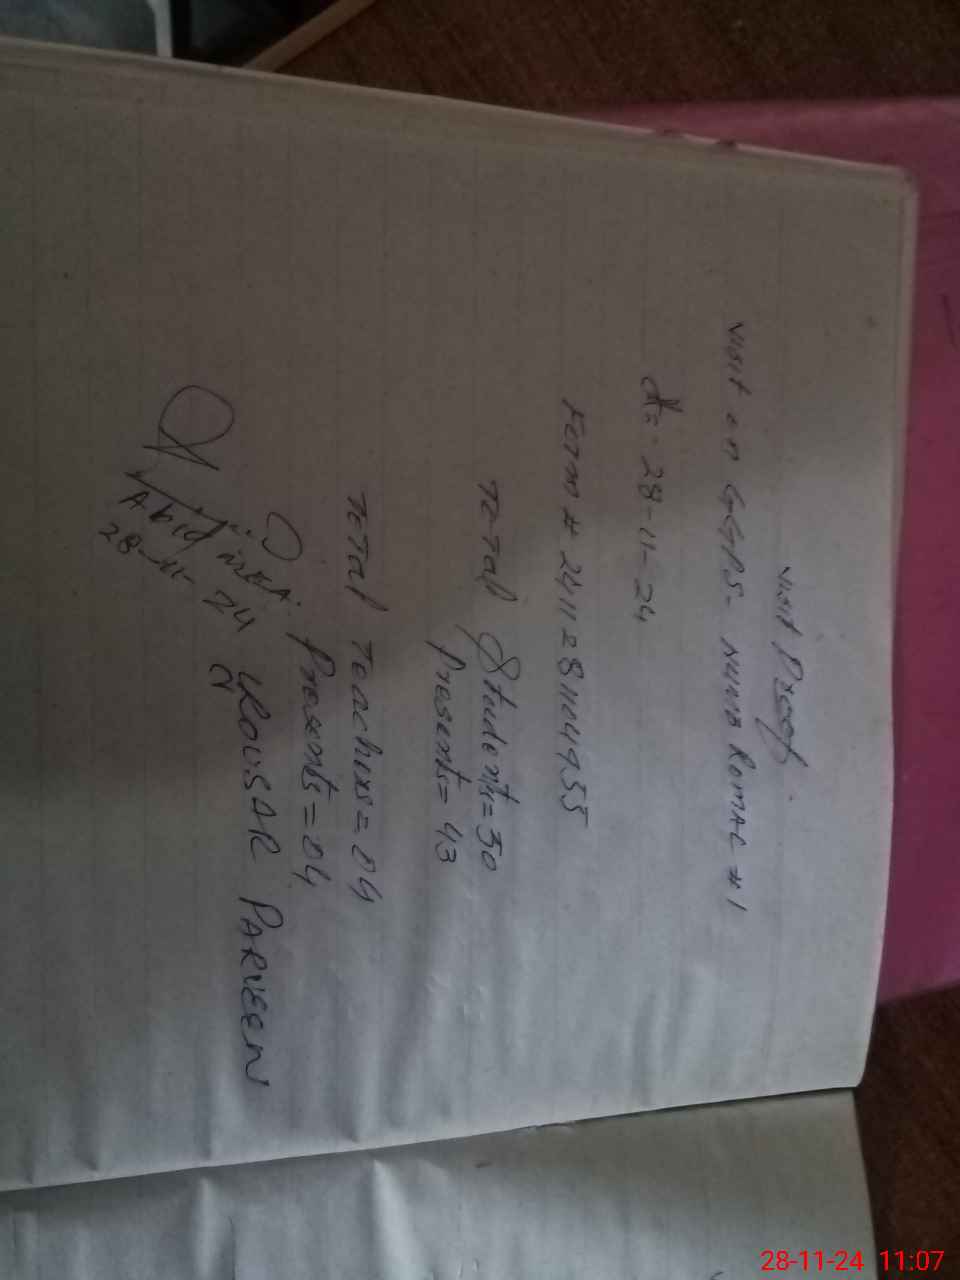 Visit Proof
Visit on GGPS- NUMB ROMAL #1
dt:- 28-11-24
Form # 241128111114955
Total Students=50
Presents=43
Total Teachers=04
Presents=04
KOUSAR PARVEEN
Abid MEA
28-11-24
28-11-24 11:07